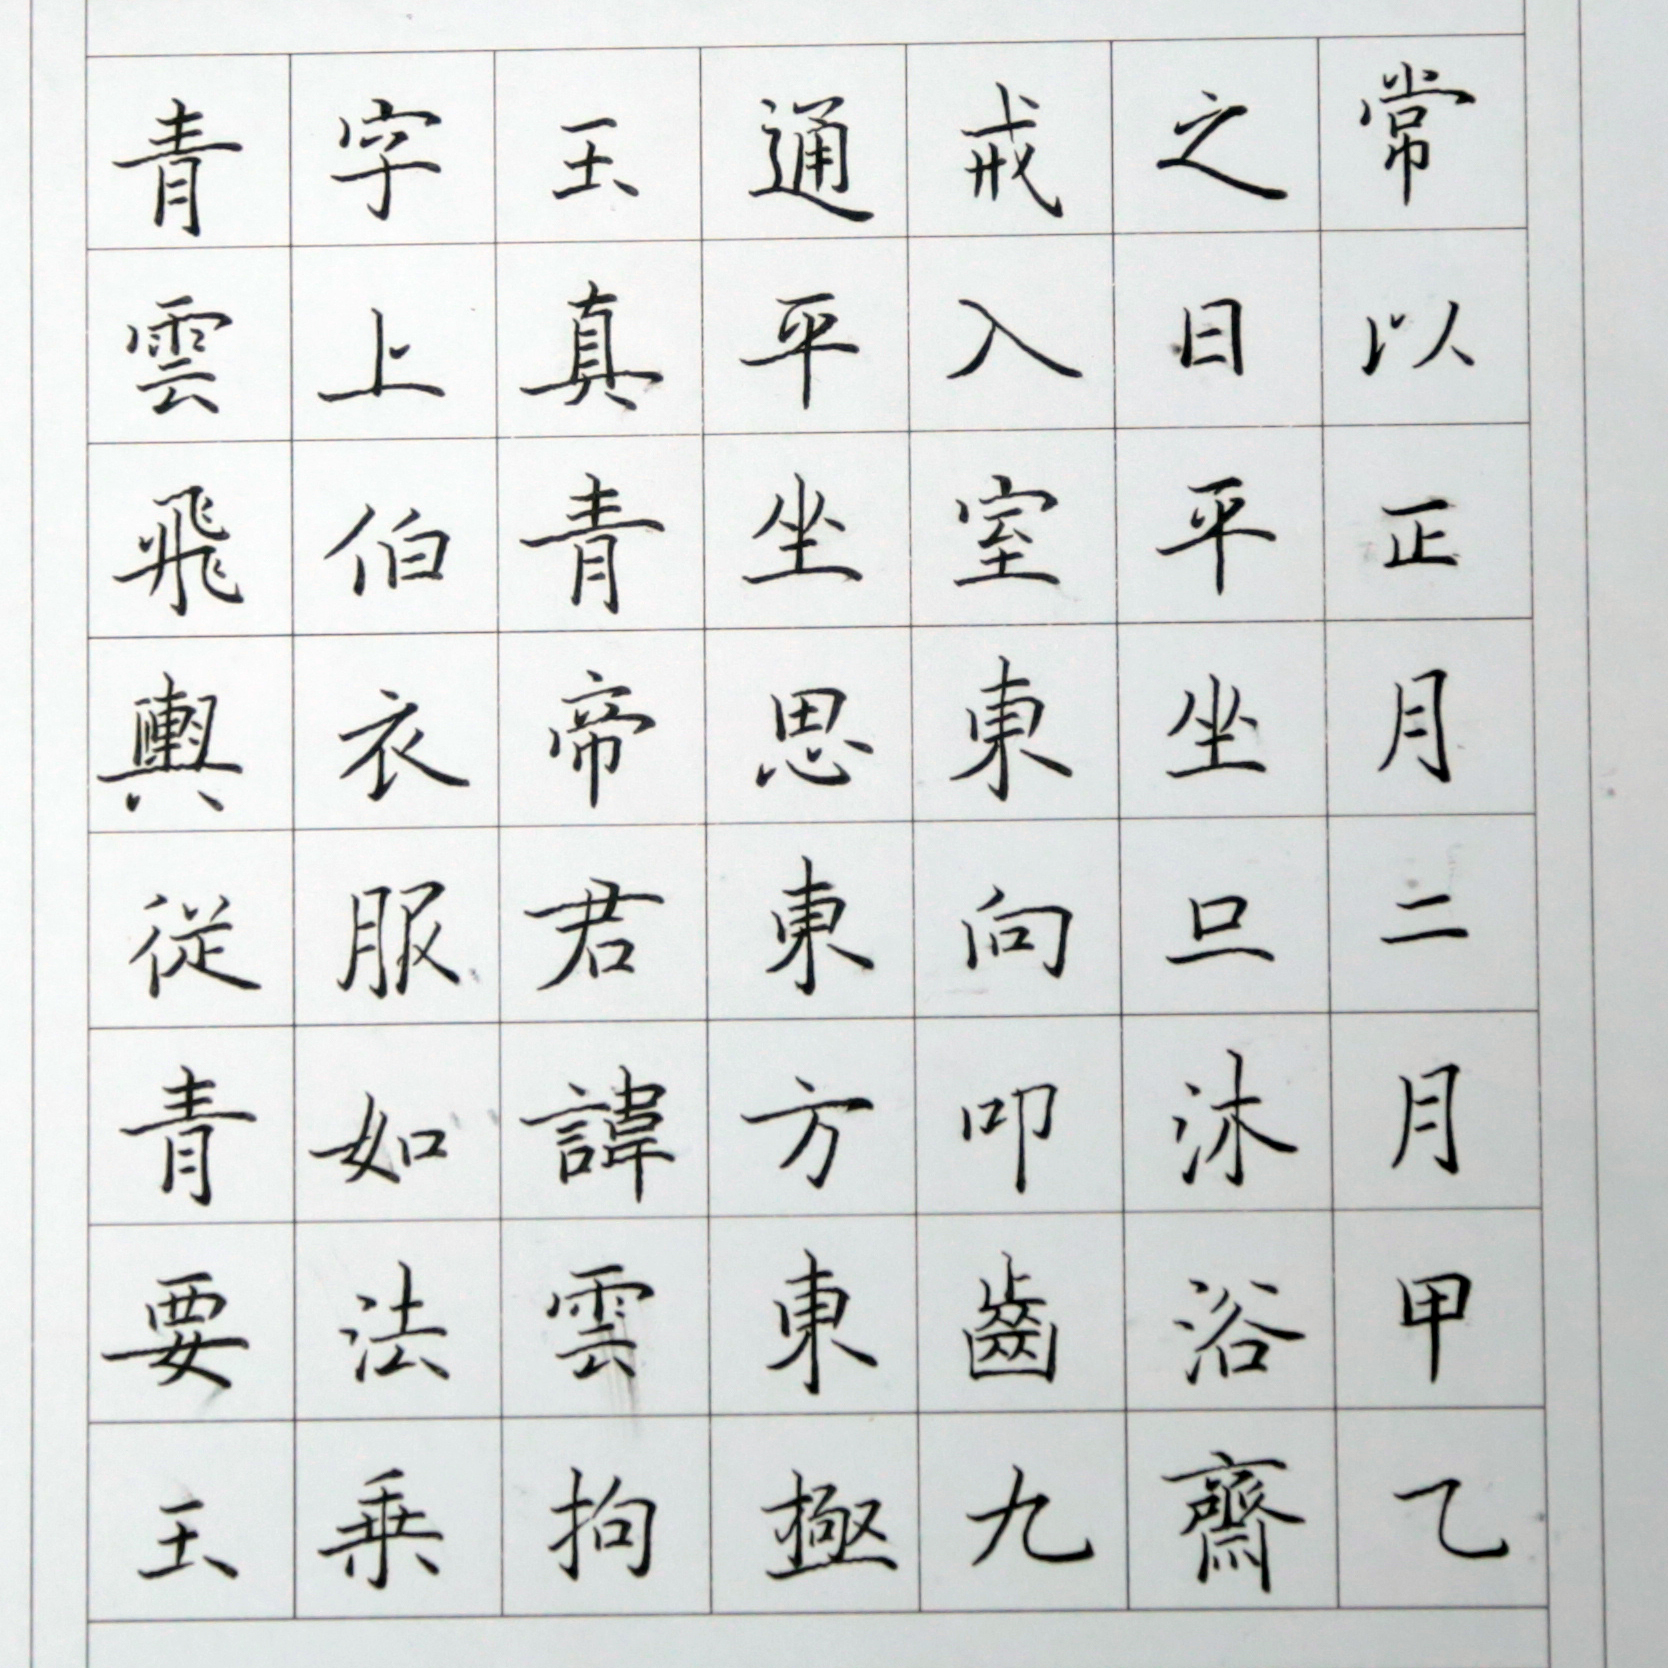 常以正月二月甲乙
之日平坐旦沐浴齋
戒入室東向叩齒九
通平坐思東方東極
玉真青帝君諱雲拘
字上伯衣服如法乗
青雲飛輿從青要玉